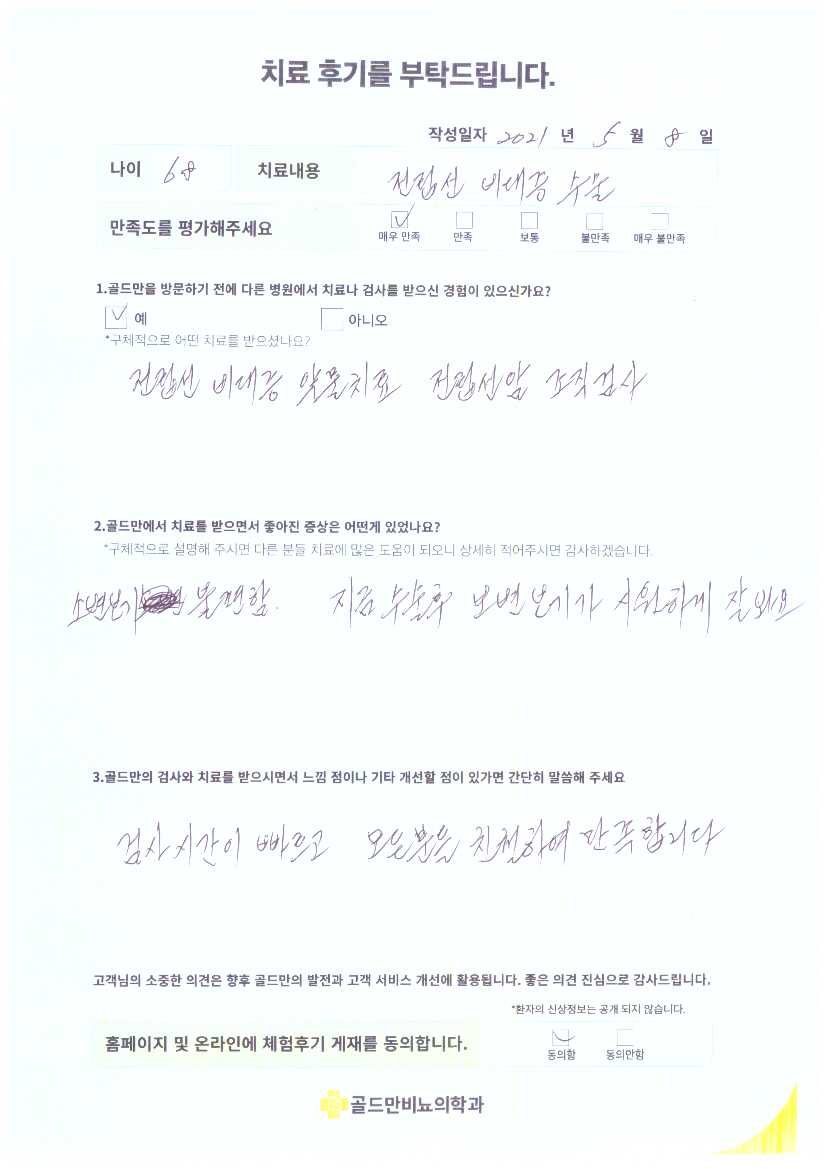 치료 후기를 부탁드립니다.
작성일자 2021 년 5 월 8 일
나이 68 치료내용 전립선 비대증 수술
만족도를 평가해주세요 매우 만족 만족 보통 불만족 매우 불만족
1.골드만을 방문하기 전에 다른 병원에서 치료나 검사를 받으신 경험이 있으신가요?
예 아니오
*구체적으로 어떤 치료를 받으셨나요?
전립선 비대증 약물치료 전립선암 조직검사
2.골드만에서 치료를 받으면서 좋아진 증상은 어떤게 있었나요?
*구체적으로 설명해 주시면 다른 분들 치료에 많은 도움이 되오니 상세히 적어주시면 감사하겠습니다.
소변보기 불편함. 지금 수술후 소변보기가 시원하게 잘봐요
3.골드만의 검사와 치료를 받으시면서 느낌 점이나 기타 개선할 점이 있가면 간단히 말씀해 주세요
검사시간이 빠르고 모든분들 친절하여 만족합니다
고객님의 소중한 의견은 향후 골드만의 발전과 고객 서비스 개선에 활용됩니다. 좋은 의견 진심으로 감사드립니다.
*환자의 신상정보는 공개 되지 않습니다.
홈페이지 및 온라인에 체험후기 게재를 동의합니다. 동의함 동의안함
골드만비뇨의학과